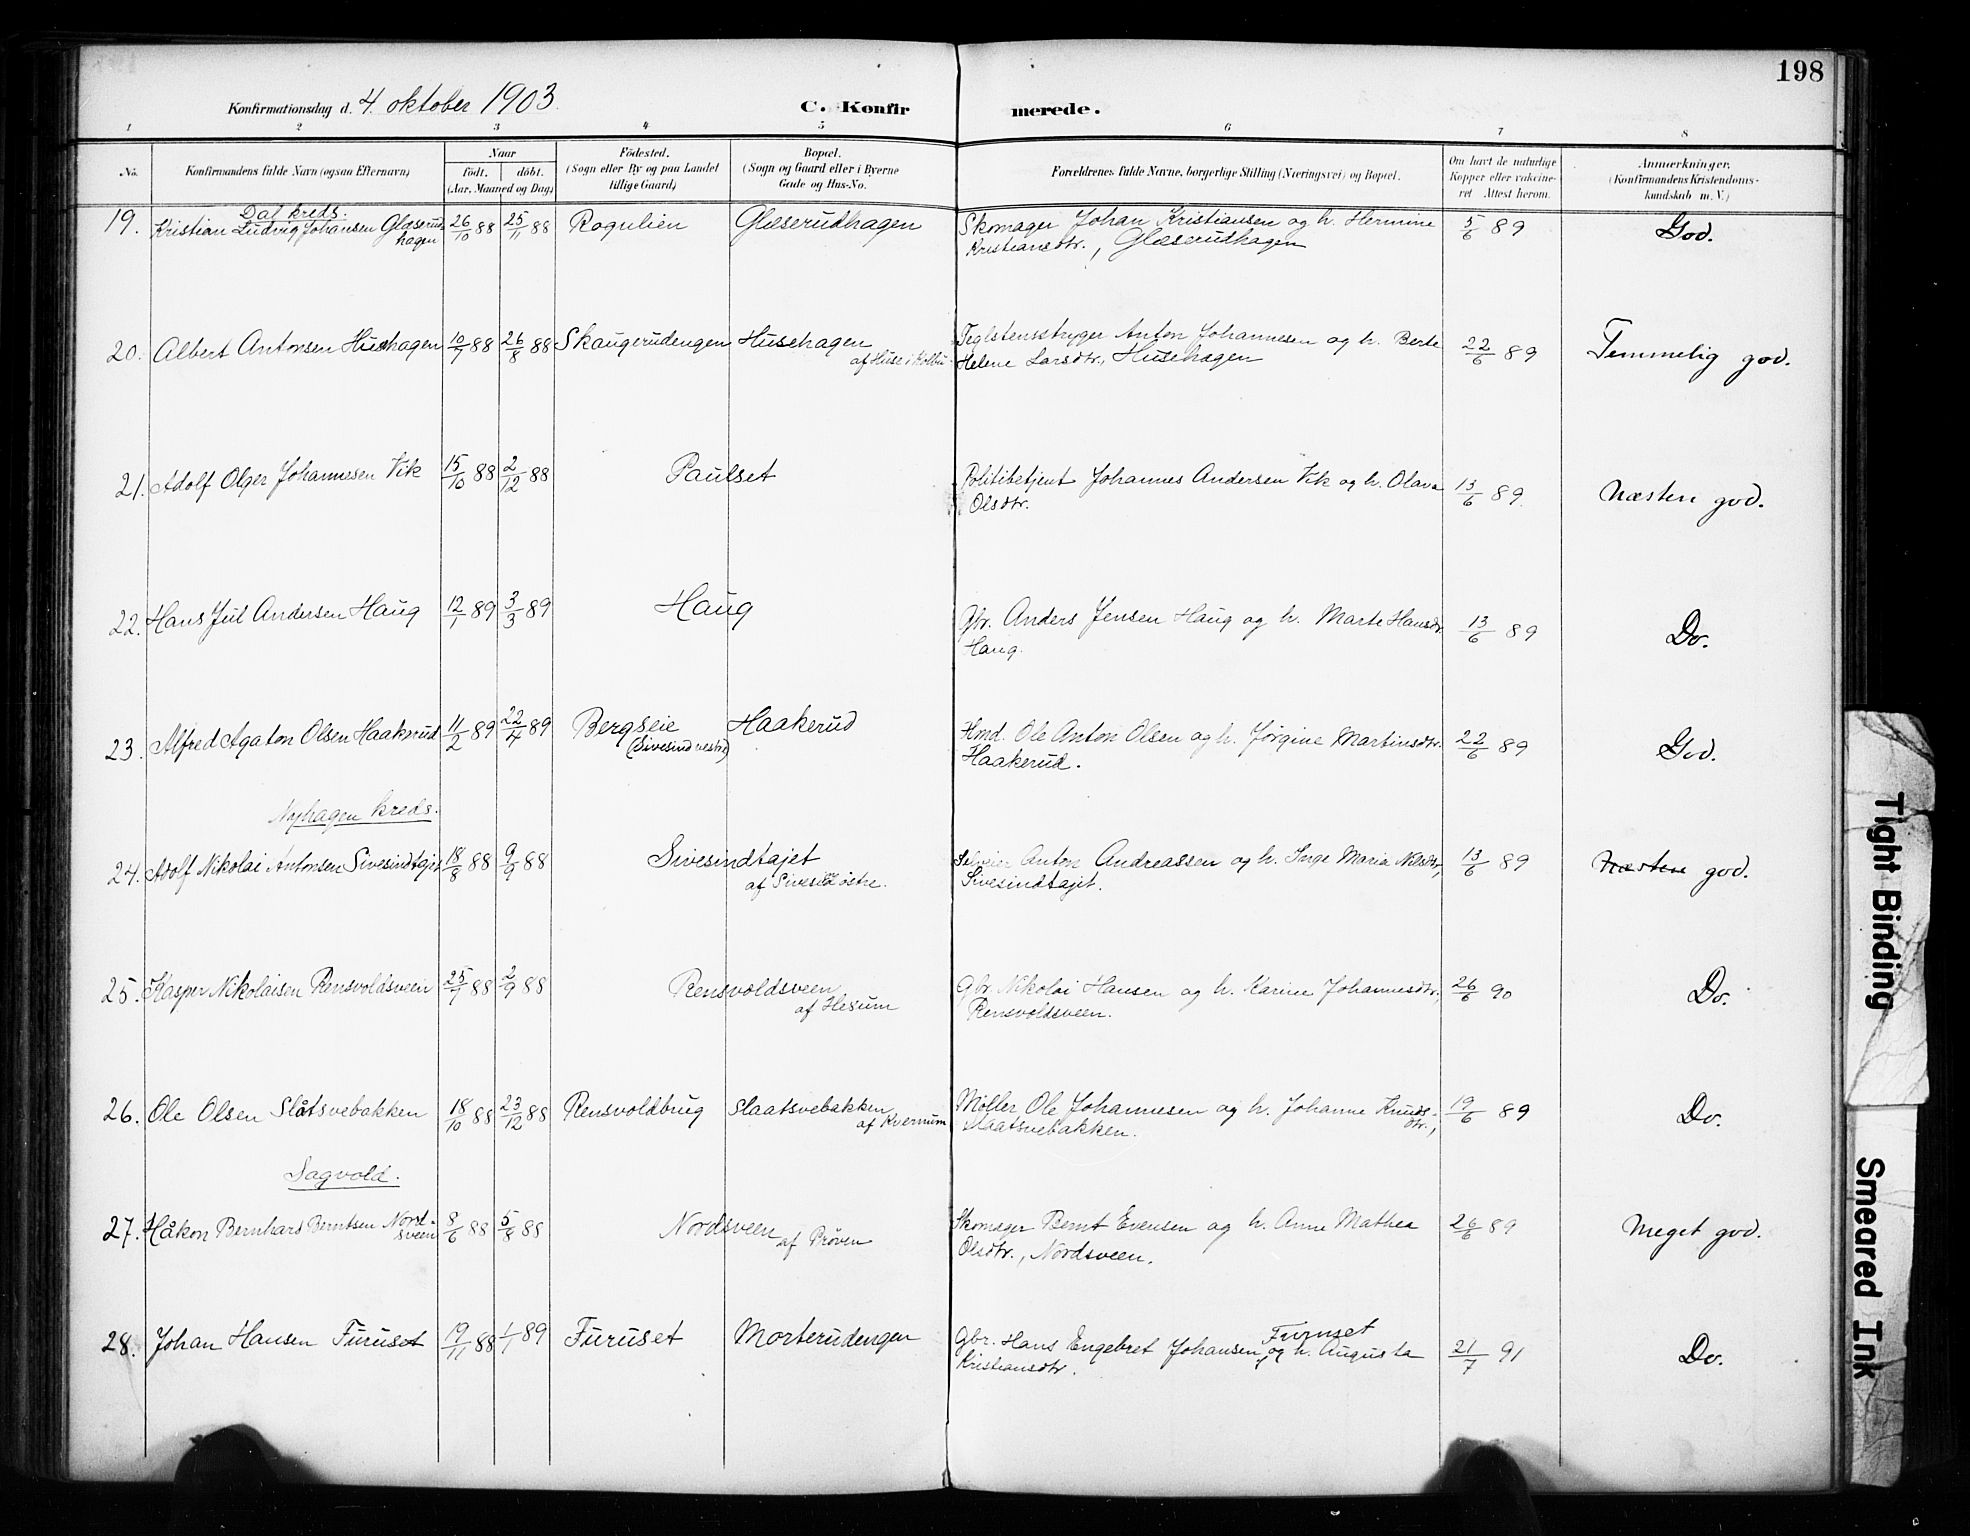 198
Konfirmationsdag d. 4. oktober 1903.
C. Konfirmerede.
1 2 3 4 5 6 7 8
No. Konfirmandens fulde Navn (ogsaa Efternavn) Naar födt. döbt. (Aar, Maaned og Dag) Födested. (Sogn eller By og paa Landet tillige Gaard) Bopæl. (Sogn og Gaard eller i Byerne Gade og Hus-No. Forældrenes fulde Navne, borgerlige Stilling (Næringsvei) og Bopæl. Om havt de naturlige Kopper eller vakcineret Attest herom. Anmærkninger. (Konfirmandens Kristendomskundskab m. V.)
Dal kreds.
19. Kristian Ludvig Johansen Glæserud- 26/10 88 25/11 88 Rognlien Glæserudhagen Skomager Johan Kristiansen og h. Hermine 5/6 89 God.
hagen Kristiansdtr., Glæserudhagen
20. Albert Antonsen Husehagen 10/7 88 26/8 88 Skaugerudengen Husehagen Teglstensstryger Anton Johannesen og h. Berte 22/6 89 Temmelig god.
af Huse i Kolbu Helene Larsdtr., Husehagen
21. Adolf Olger Johannesen Vik 15/10 88 2/12 88 Paulset Politibetjent Johannes Andersen Vik og h. Olava 13/6 89 Næsten god.
Olsdtr.
22. Hans Jul Andersen Haug 12/1 89 3/3 89 Haug Gbr. Anders Jensen Haug og h. Marte Hansdtr. 13/6 89 Do.
Haug.
23. Alfred Agaton Olsen Haakerud 11/2 89 22/4 89 Bergseie Haakerud Hmd. Ole Anton Olsen og h. Jørgine Martinsdtr. 22/6 89 God.
(Sivesind vestre) Haakerud.
Nyhagen kreds.
24. Adolf Nikolai Antonsen Sivesindtajet 18/8 88 9/9 88 Sivesindtajet Selveier Anton Andreassen og h. Inge Maria Nilsdtr, 13/6 89 Næsten god.
af Sivesind østre. Sivesindtajet.
25. Kasper Nikolaisen Rensvoldsveen 25/7 88 2/9 88 Rensvoldsveen Gbr Nikolai Hansen og h. Karine Johannesdtr. 26/6 90 Do.
af Hesum Rensvoldsveen.
26. Ole Olsen Slåtsvebakken 18/10 88 23/12 88 Rensvoldbrug Slaatsvebakken Møller Ole Johannesen og h. Johanne Knuds- 19/6 89 Do.
af Kvernum dtr., Slaatsvebakken.
Sagvold.
27. Håkon Bernhard Berntsen Nord- 8/6 88 5/8 88 Nordsveen Skomager Bernt Evensen og h. Anne Mathea 26/6 89 Meget god.
sveen af Prøven Olsdtr., Nordsveen.
28. Johan Hansen Furuset 19/11 88 1/1 89 Furuset Morterudengen Gbr. Hans Engebret Johansen Furuset og h. Augusta 21/7 91 Do.
Kristiansdtr.
Tight Binding
Smeared Ink